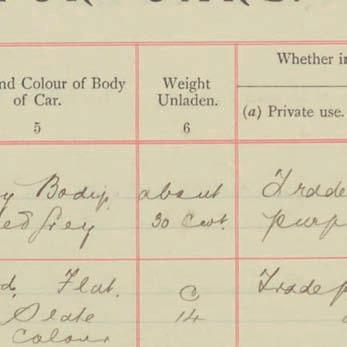 nd Colour of Body of Car.
5
Weight Unladen.
6
Whether in
(a) Private use.
y Body. about Trade
ed Grey 30 Cwt. purp
d. Flat. C Trade p
Slate 14
Colour